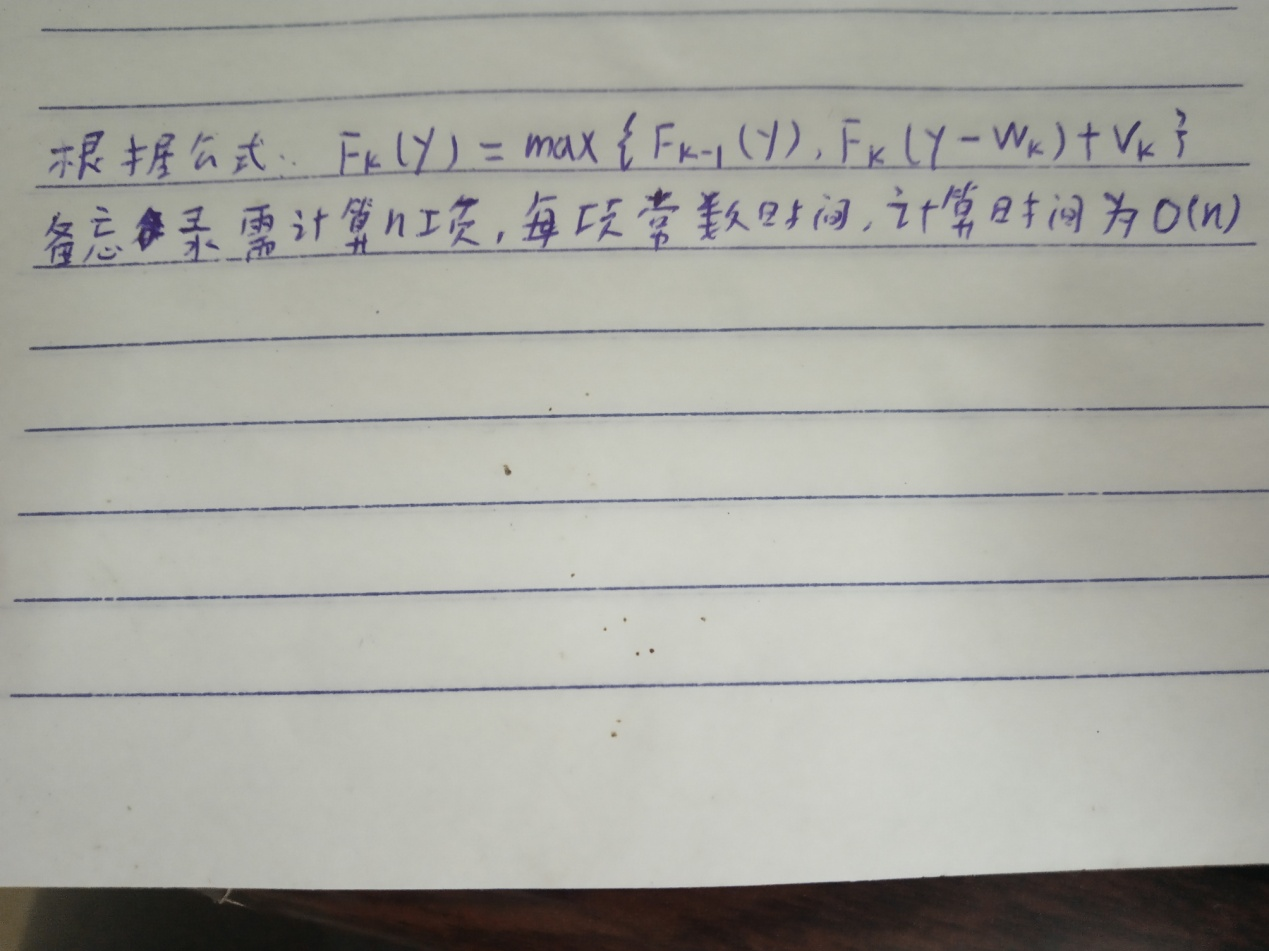 根据公式: Fk(y) = max{Fk-1(y), Fk(y-Wk)+Vk}
备忘录需计算n项,每项常数时间,计算时间为O(n)